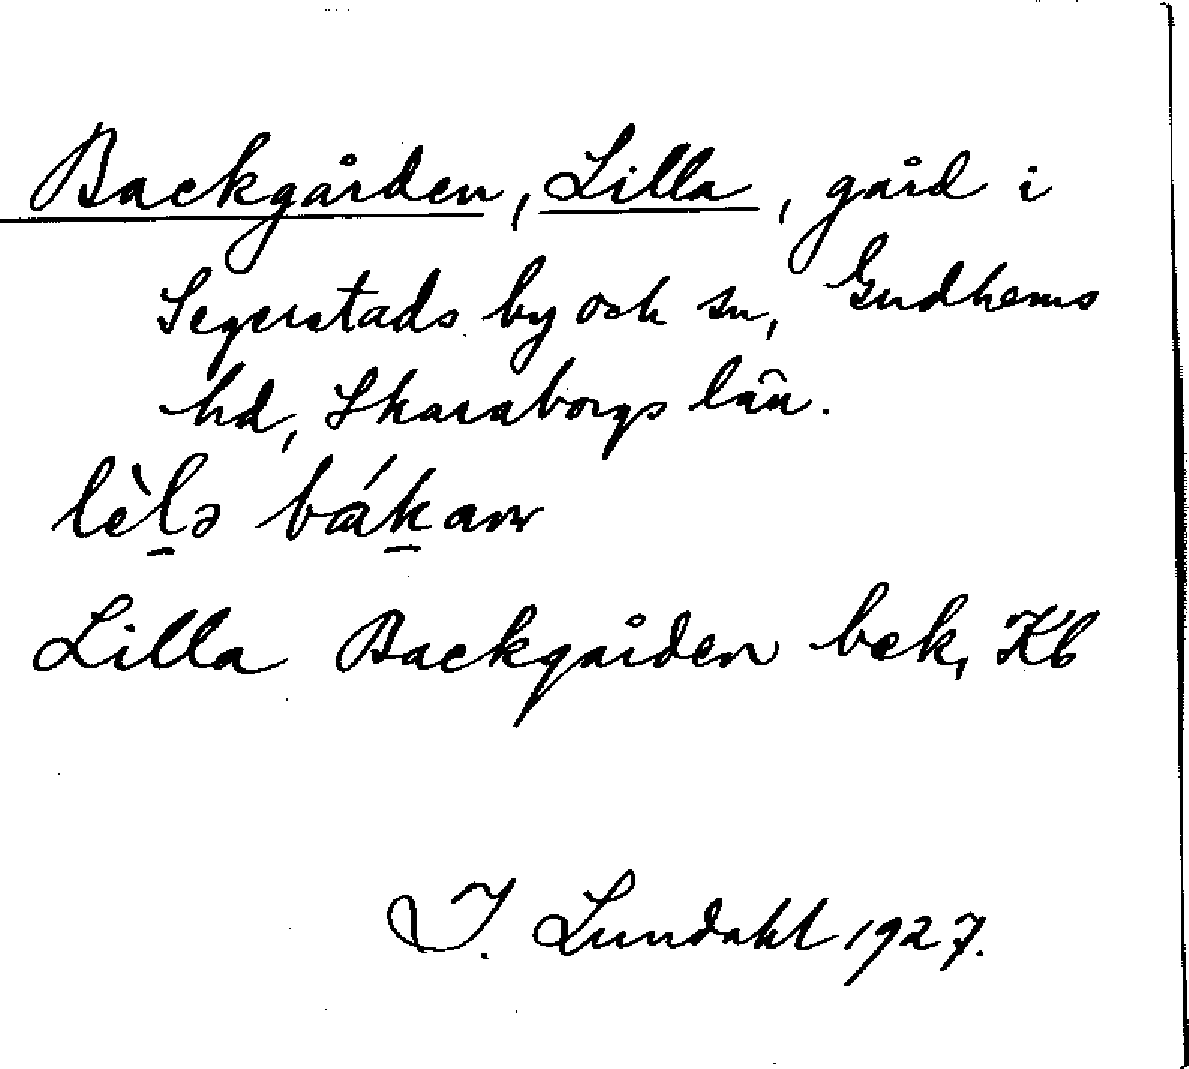 Backgården, Lilla, gård i
Segerstads by och sn, Gudhems
hd, Skaraborgs län.
lèl̠ə bák̠anr
Lilla Backgården bek, Kb
I. Lundahl 1927.